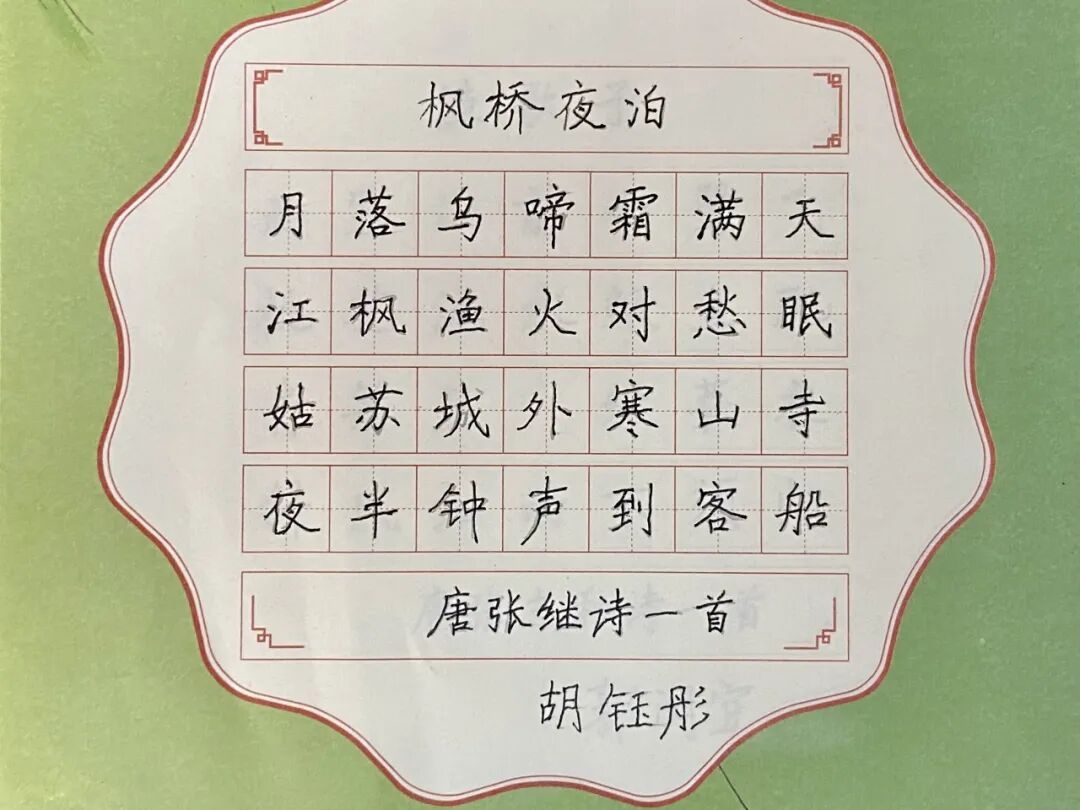 枫桥夜泊
月落乌啼霜满天
江枫渔火对愁眠
姑苏城外寒山寺
夜半钟声到客船
唐张继诗一首
胡钰彤